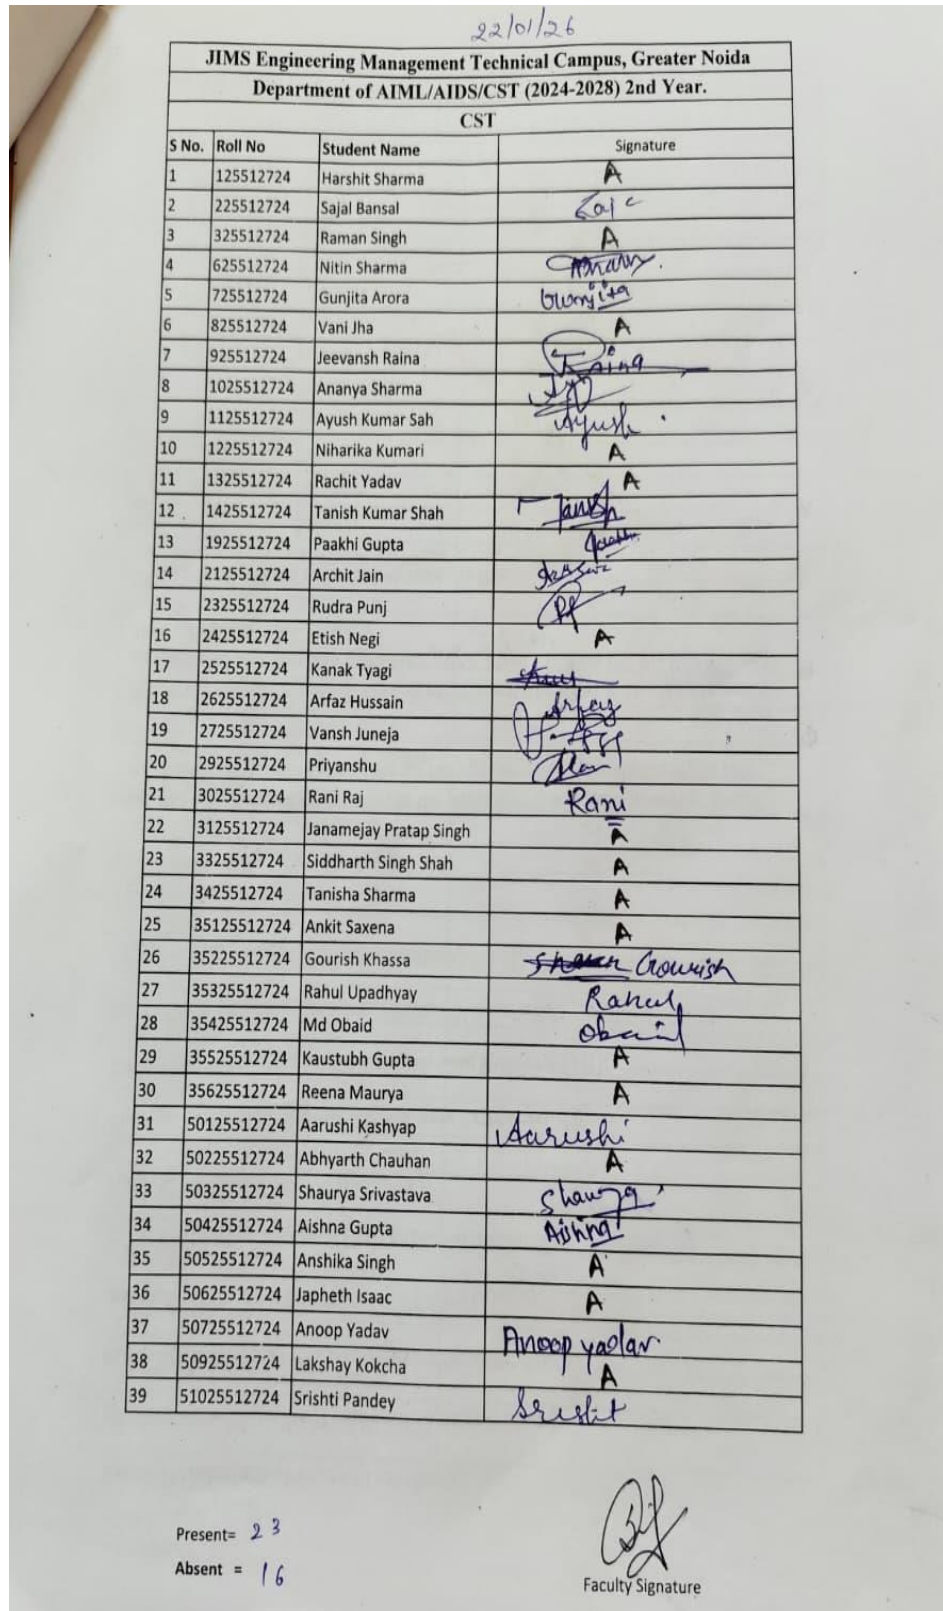 22/01/26
JIMS Engineering Management Technical Campus, Greater Noida
Department of AIML/AIDS/CST (2024-2028) 2nd Year.
CST
S No. Roll No Student Name Signature
1 125512724 Harshit Sharma A
2 225512724 Sajal Bansal
3 325512724 Raman Singh A
4 625512724 Nitin Sharma
5 725512724 Gunjita Arora Gunjita
6 825512724 Vani Jha A
7 925512724 Jeevansh Raina Raina
8 1025512724 Ananya Sharma
9 1125512724 Ayush Kumar Sah Ayush
10 1225512724 Niharika Kumari A
11 1325512724 Rachit Yadav A
12 1425512724 Tanish Kumar Shah Tanish
13 1925512724 Paakhi Gupta
14 2125512724 Archit Jain
15 2325512724 Rudra Punj
16 2425512724 Etish Negi A
17 2525512724 Kanak Tyagi
18 2625512724 Arfaz Hussain Arfaz
19 2725512724 Vansh Juneja
20 2925512724 Priyanshu
21 3025512724 Rani Raj Rani
22 3125512724 Janamejay Pratap Singh A
23 3325512724 Siddharth Singh Shah A
24 3425512724 Tanisha Sharma A
25 35125512724 Ankit Saxena A
26 35225512724 Gourish Khassa Gourish
27 35325512724 Rahul Upadhyay Rahul
28 35425512724 Md Obaid Obaid
29 35525512724 Kaustubh Gupta A
30 35625512724 Reena Maurya A
31 50125512724 Aarushi Kashyap Aarushi
32 50225512724 Abhyarth Chauhan A
33 50325512724 Shaurya Srivastava Shaurya
34 50425512724 Aishna Gupta Aishna
35 50525512724 Anshika Singh A
36 50625512724 Japheth Isaac A
37 50725512724 Anoop Yadav Anoop yadav
38 50925512724 Lakshay Kokcha A
39 51025512724 Srishti Pandey
Present= 23
Absent = 16
Faculty Signature